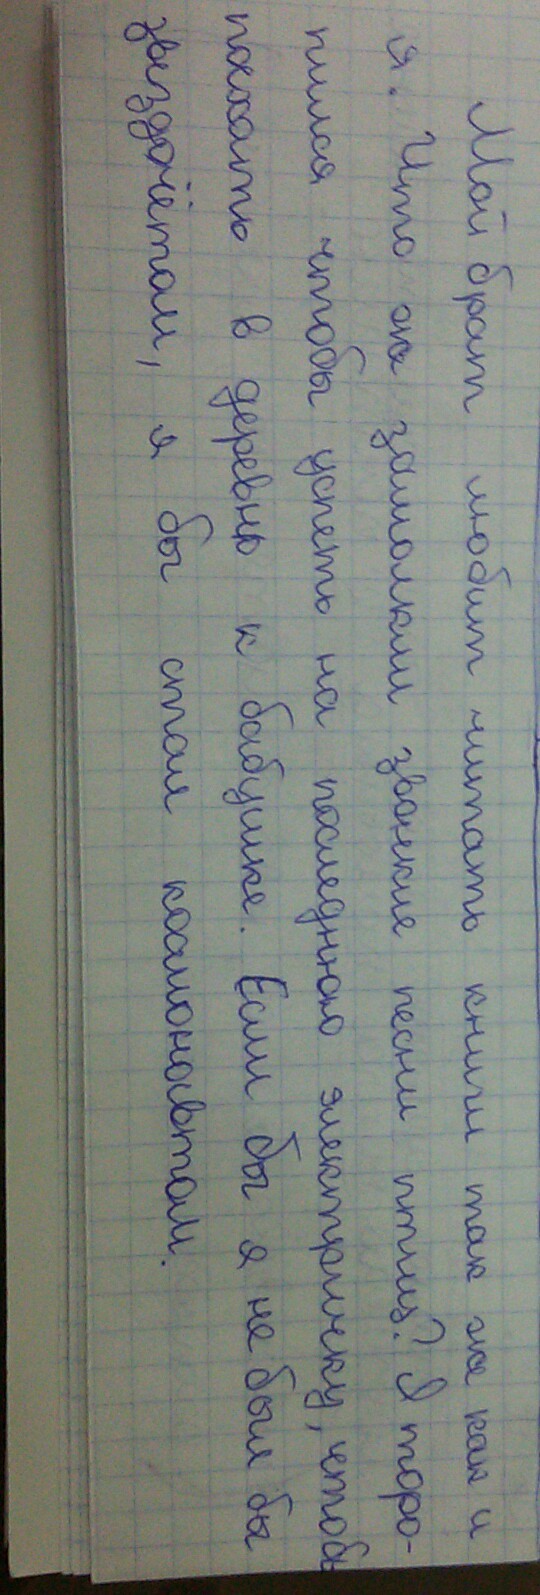 Мой брат любит читать книги так же как и
я. Что ж замолкли звонкие песни птиц? Я торо-
пился чтобы успеть на последнюю электричку, чтобы
поехать в деревню к бабушке. Если бы я не был бы
звездочётом, я бы стал космонавтом.